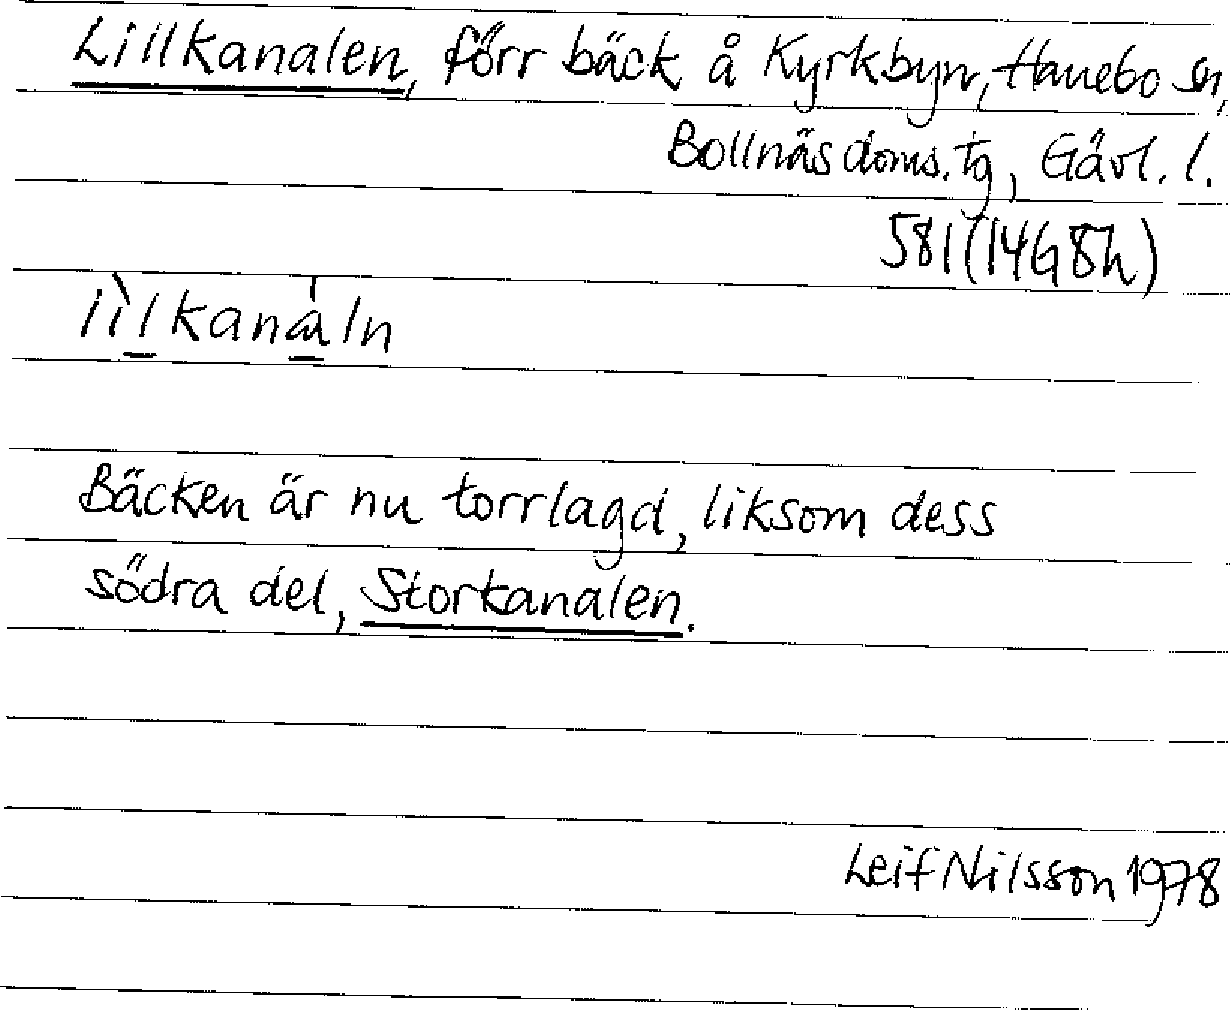 Lillkanalen, förr bäck å Kyrkbyn, Hanebo sn,
Bollnäs doms. tg, Gävl. l.
581 (14G8h)
lìlkanáln
Bäcken är nu torrlagd, liksom dess
södra del, Storkanalen.
Leif Nilsson 1978